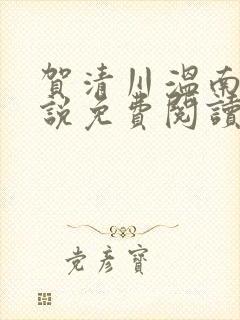 賀清川溫南
說免費閱讀
党彦寶